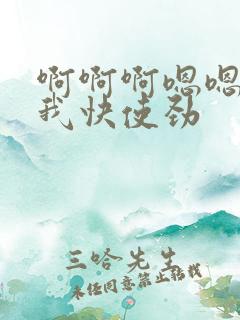 啊啊啊嗯嗯
我快使劲
三哈先生
未经同意禁止转载